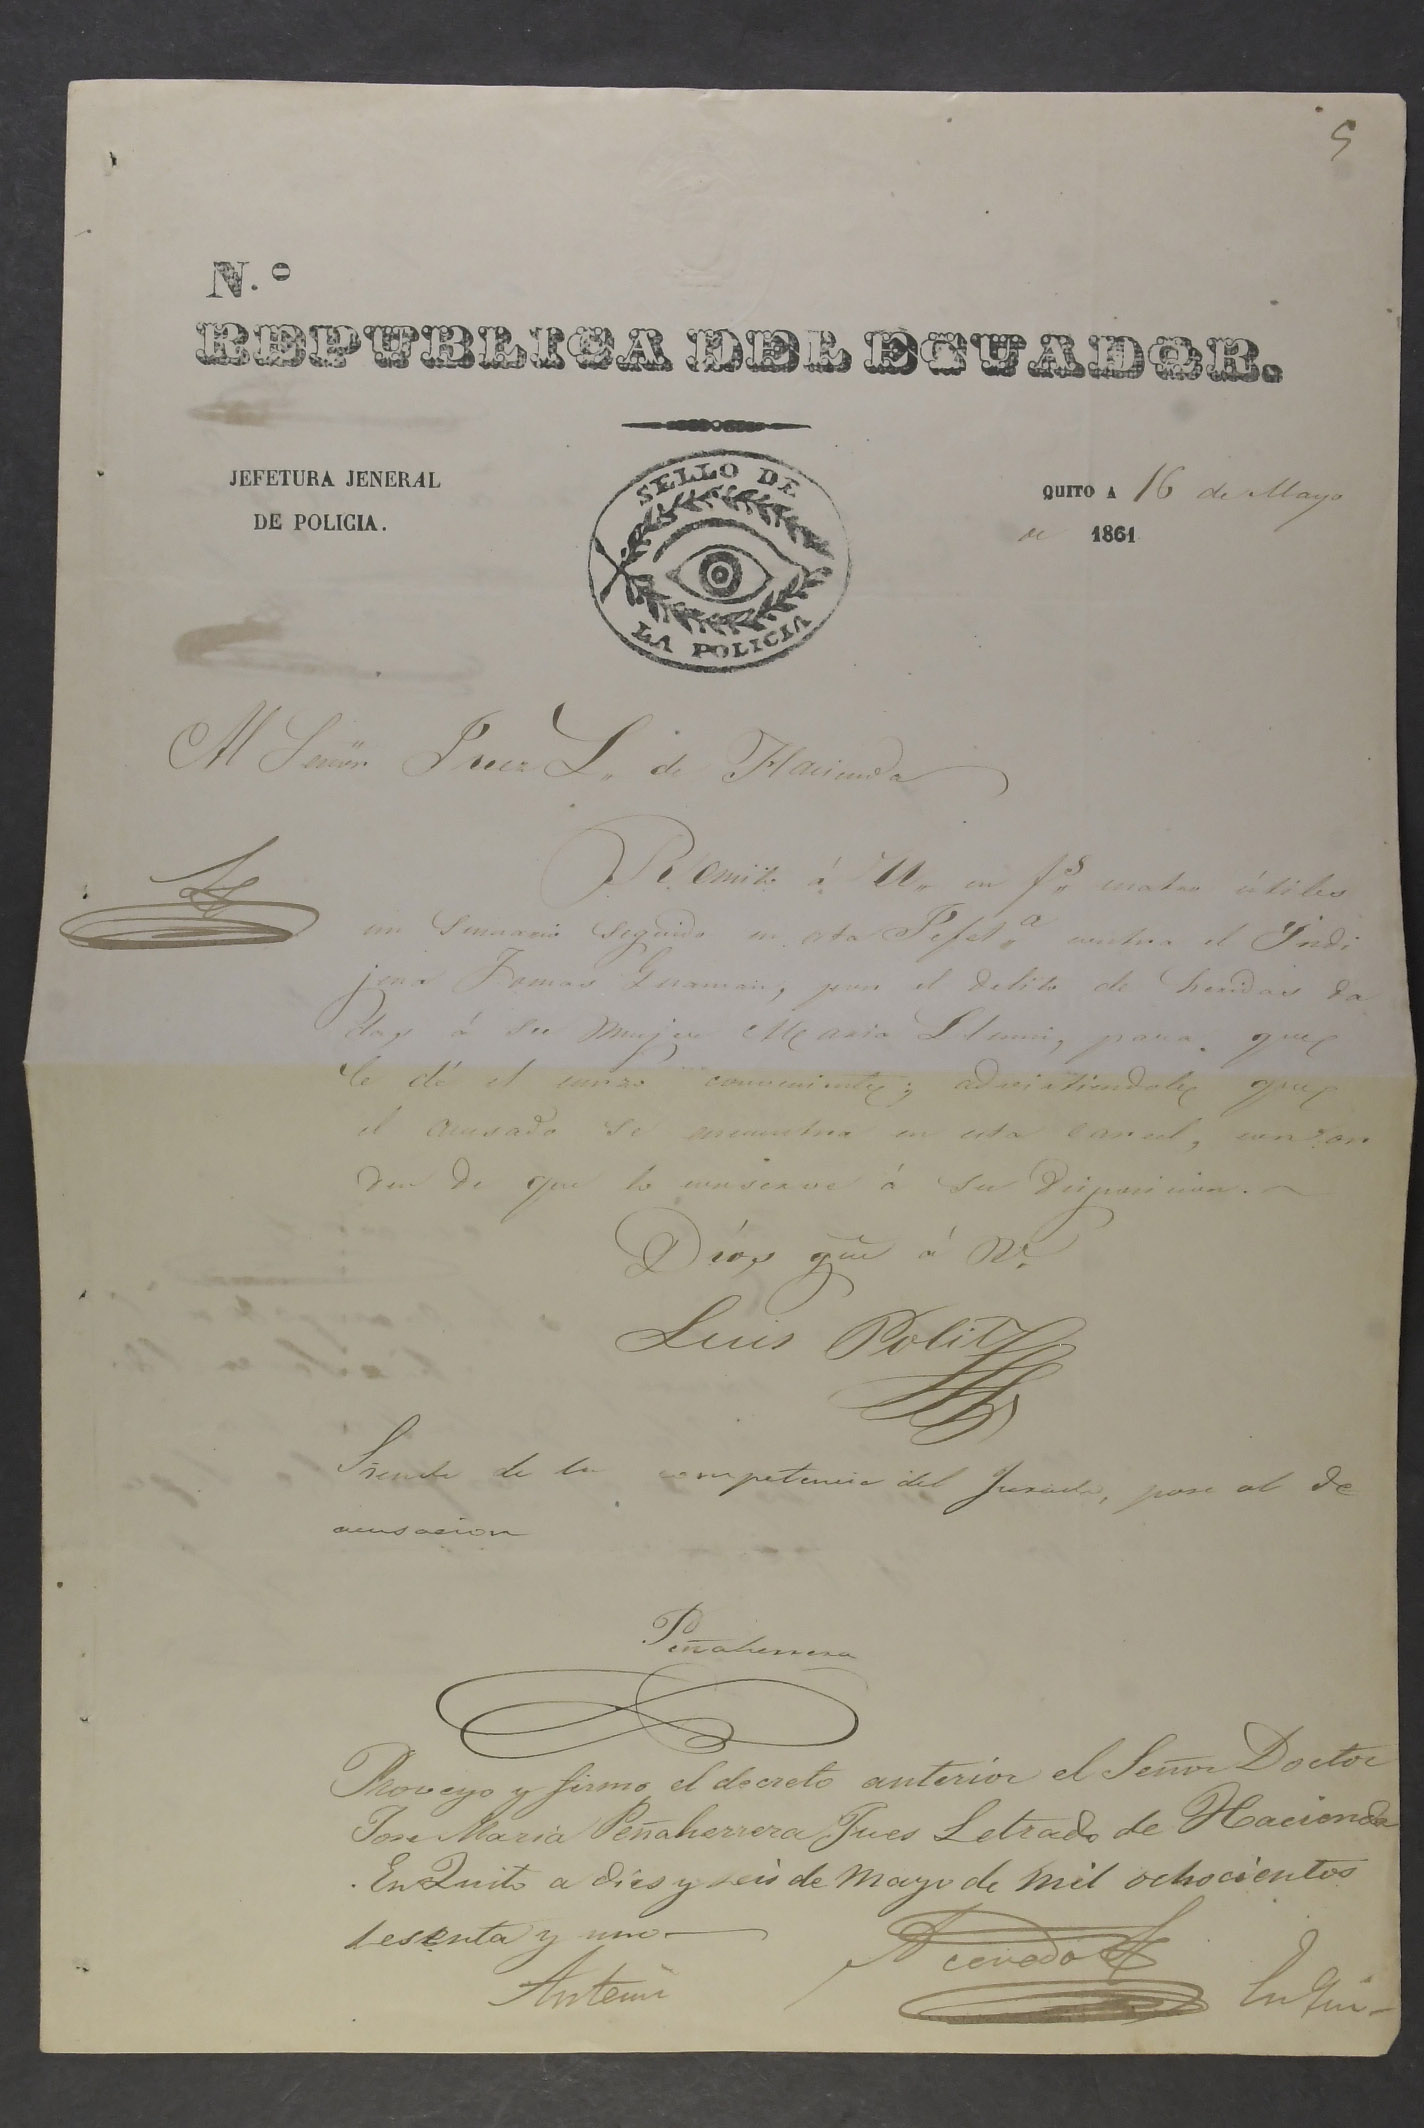 5
N.º
REPUBLICA DEL ECUADOR.
JEFETURA JENERAL
DE POLICIA.
SELLO DE
LA POLICIA
QUITO A 16 de Mayo
de 1861
Al Señor Juez L. de Hacienda
Remito á U. en f.s cuatro útiles
un sumario seguido en esta Jefet.a contra el Indi
jena Tomas Guaman, por el delito de heridas da
das á su mujer Maria, para que
le dé el curso conveniente; advirtiendole que
el acusado se encuentra en esta carcel, con or
den de que lo conserve á su disposicion.
Dios gue á U.
Luis Polit
Siendo de la competencia del Jurado, pase al de
acusacion
Peñaherrera
Proveyo y firmo el decreto anterior el Señor Doctor
Jose Maria Peñaherrera Jues Letrado de Hacienda
En Quito a dies y seis de Mayo de mil ochocientos
sesenta y uno
Antemi
Acevedo
En Qui-